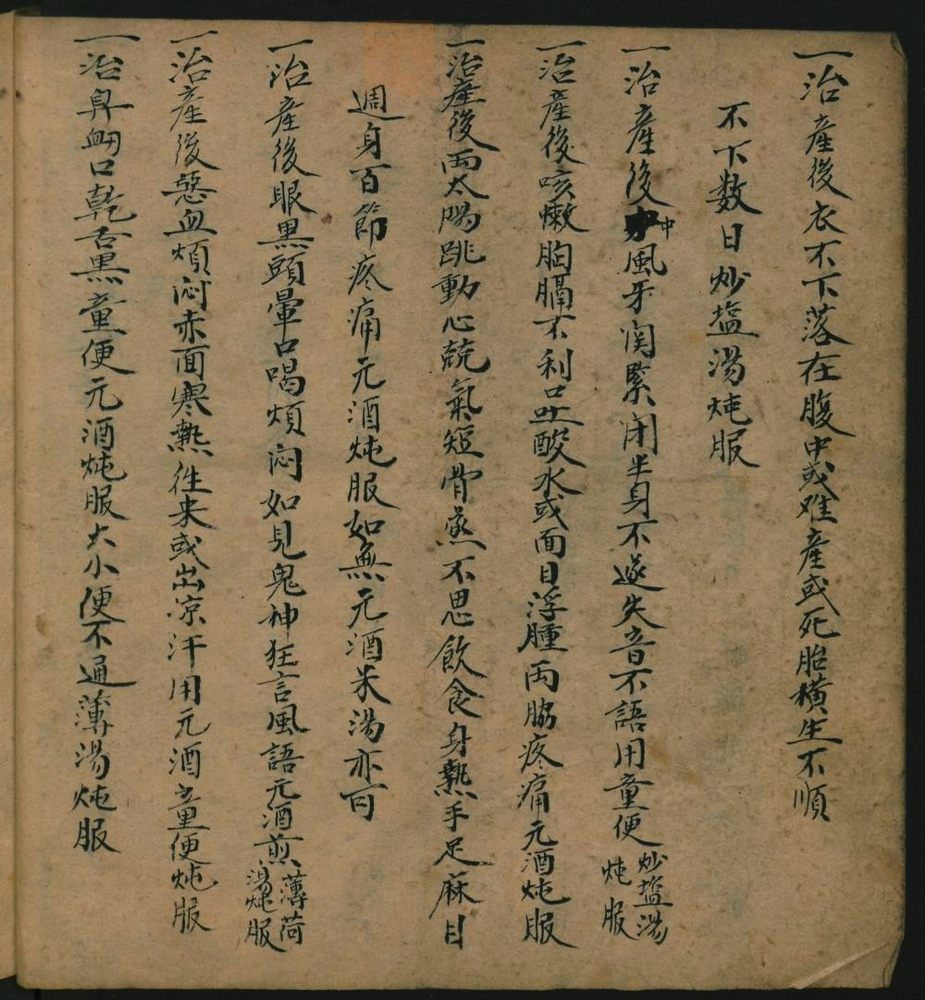 一治產後衣不下落在腹中或难產或死胎橫生不順
不下数日炒塩湯炖服
一治產後中風牙関緊闭半身不遂失音不語用童便炒塩湯炖服
一治產後咳嗽胸膈不利口吐酸水或面目浮腫両脇疼痛元酒炖服
一治產後両太陽跳動心兢氣短骨蒸不思飲食身熱手足麻目
週身百節疼痛元酒炖服如無元酒米湯亦可
一治產後眼黒頭暈口喝煩闷如見鬼神狂言風語元酒煎薄荷湯炖服
一治產後惡血煩闷赤面寒熱往来或出凉汗用元酒童便炖服
一治鼻衂口乾舌黒童便元酒炖服大小便不通薄湯炖服